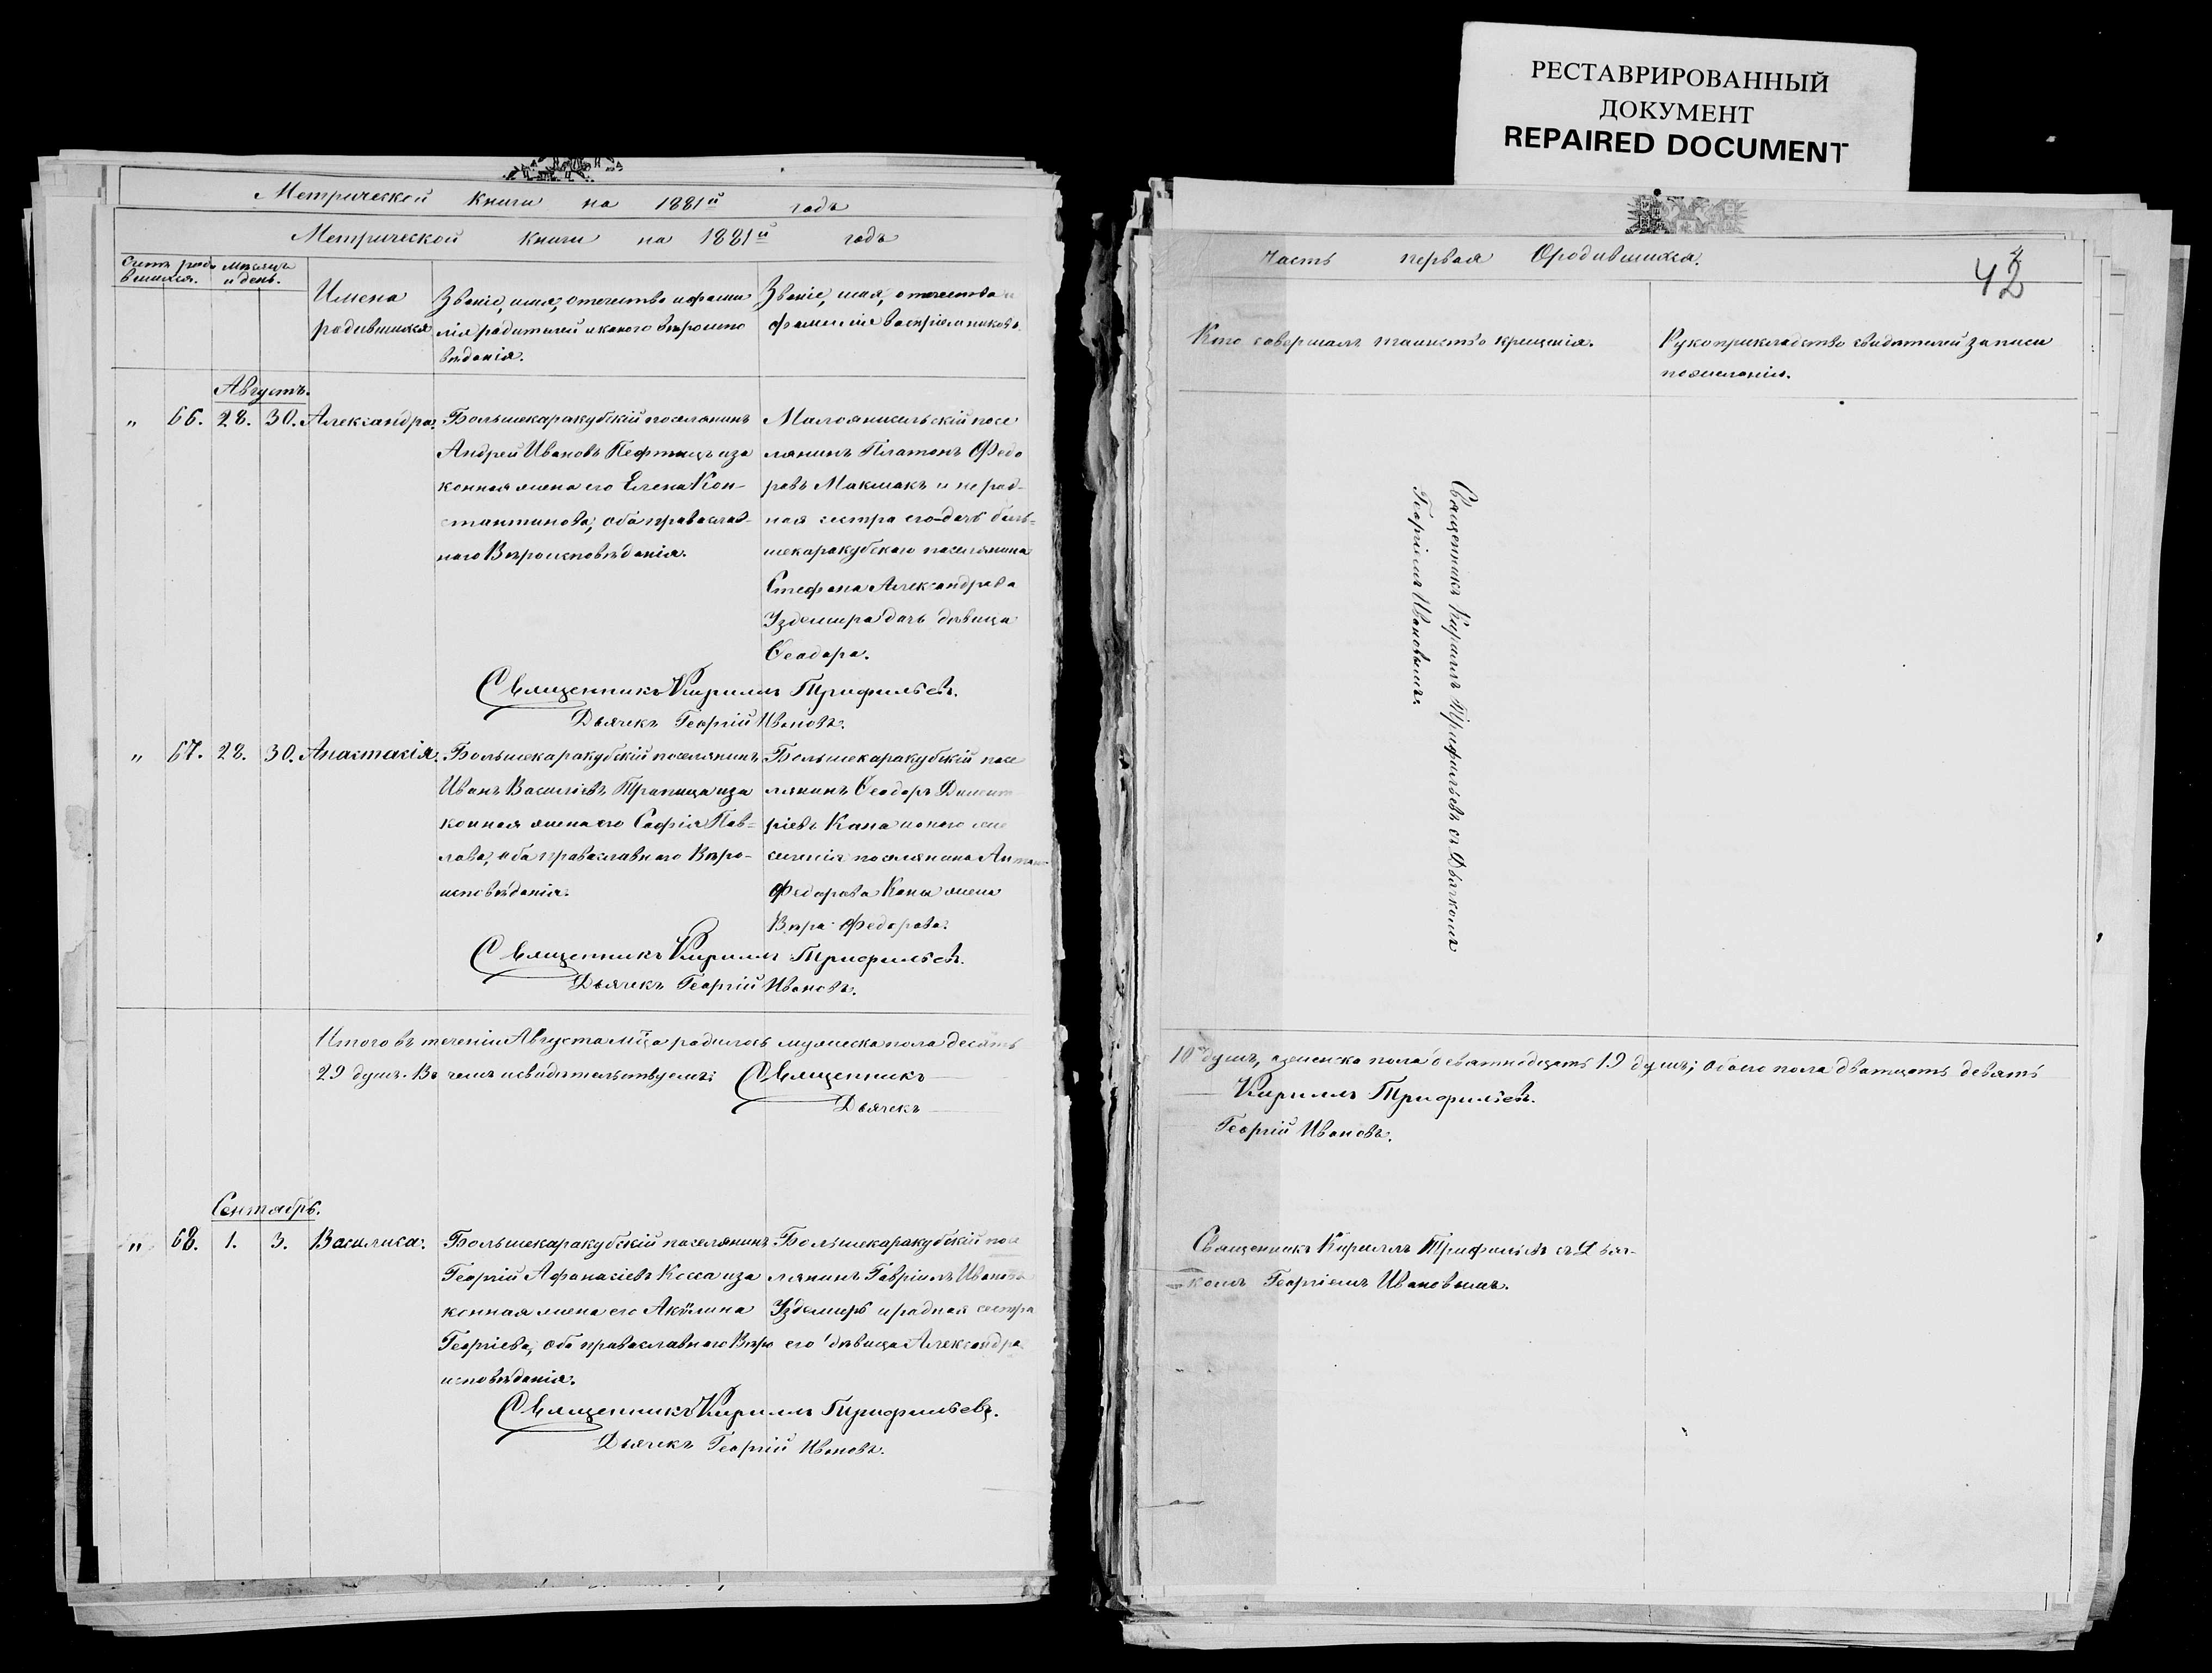 РЕСТАВРИРОВАННЫЙ
ДОКУМЕНТ
REPAIRED DOCUMENT
Метрической книги на 1881й годъ
Метрической книги на 1881й годъ
Счетъ роди
вшихся.
Мѣсяцъ
и день.
Имена
родившихся
Званіе, имя, отечество и фами
лія родителей и какого вѣроиспо
вѣданія.
Званіе, имя, отечество и
фамилія воспріемниковъ.
Августъ.
„ 66. 28. 30. Александра.
Большекаракубскій поселянинъ
Андрей Ивановъ Пефтицъ и за
конная жена его Елена Кон-
стантинова; оба православ-
наго Вѣроисповѣданія.
Малоянисельскій посе
лянинъ Платонъ Федо
ровъ Макмакъ и не род-
ная сестра его дочь боль-
шекаракубскаго поселянина
Стефана Александрова
Уздемира дочь дѣвица
Ѳеодора.
Священникъ Кириллъ Трифильевъ.
Дьячекъ Георгій Ивановъ.
„ 67. 28. 30. Анастасія.
Большекаракубскій поселянинъ
Иванъ Васильевъ Трапица и за
конная жена его Софія Пав-
лова; оба православнаго Вѣро-
исповѣданія.
Большекаракубскій посе
лянинъ Ѳеодоръ Димит
ріевъ Кана и
селенія поселянина
Федорова Кана жена
Вѣра Федорова.
Священникъ Кириллъ Трифильевъ.
Дьячекъ Георгій Ивановъ.
Итого въ теченіи Августа мца родилось мужеска пола десять
29 душъ. Въ чемъ и свидѣтельствуемъ: Священникъ
Дьячекъ
Сентябрь.
„ 68. 1. 3. Василиса.
Большекаракубскій поселянинъ
Георгій Афанасіевъ Косса и за
конная жена его Акѵлина
Георгіева; оба православнаго Вѣро
исповѣданія.
Большекаракубскій посе
лянинъ Гавріилъ Иванова
Уздемиръ и родная сестра
его дѣвица Александра
Священникъ Кириллъ Трифильевъ.
Дьячекъ Георгій Ивановъ.
Часть первая О родившихся.
42
Кто совершалъ таинство крещенія.
Рукоприкладство свидѣтелей записи
по желанію.
Священникъ Кириллъ Трифильевъ съ Дьячкомъ
Георгіемъ Ивановымъ.
10 душъ, женска пола девятнадцать 19 душъ; обоего пола двадцать девять
Кириллъ Трифильевъ.
Георгій Ивановъ.
Священникъ Кириллъ Трифильевъ съ Дьяч-
комъ Георгіемъ Ивановымъ.